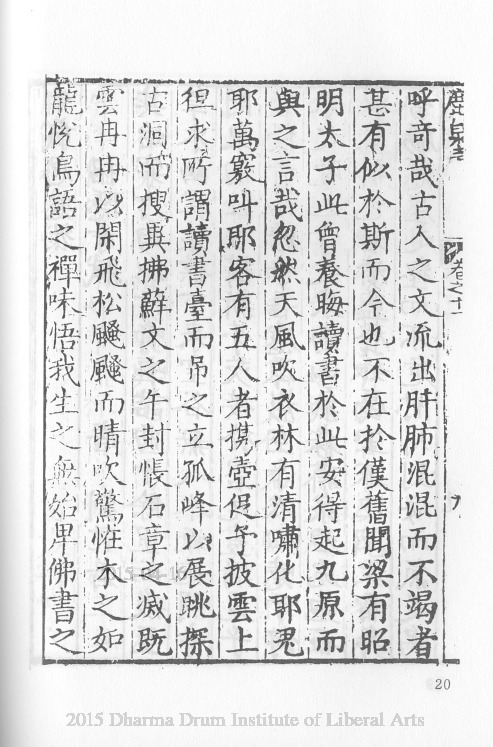 呼奇哉古人之文流出肝肺混混而不竭者
甚有似於斯而今也不在於僕舊聞梁有昭
明太子此曾養晦讀書於此安得起九原而
與之言哉忽然天風吹衣林有清嘯化耶鬼
耶萬竅叫耶客有五人者携壺促予披雲上
徂求所謂讀書臺而吊之立孤峰以展眺探
古洞而搜異拂蘚文之午封悵石章之滅既
雲冉冉以閑飛松颼颼而晴吹驚恠木之如
龍悅鳥語之禪味悟我生之無始畢佛書之
卷之十一
九
20
2015 Dharma Drum Institute of Liberal Arts